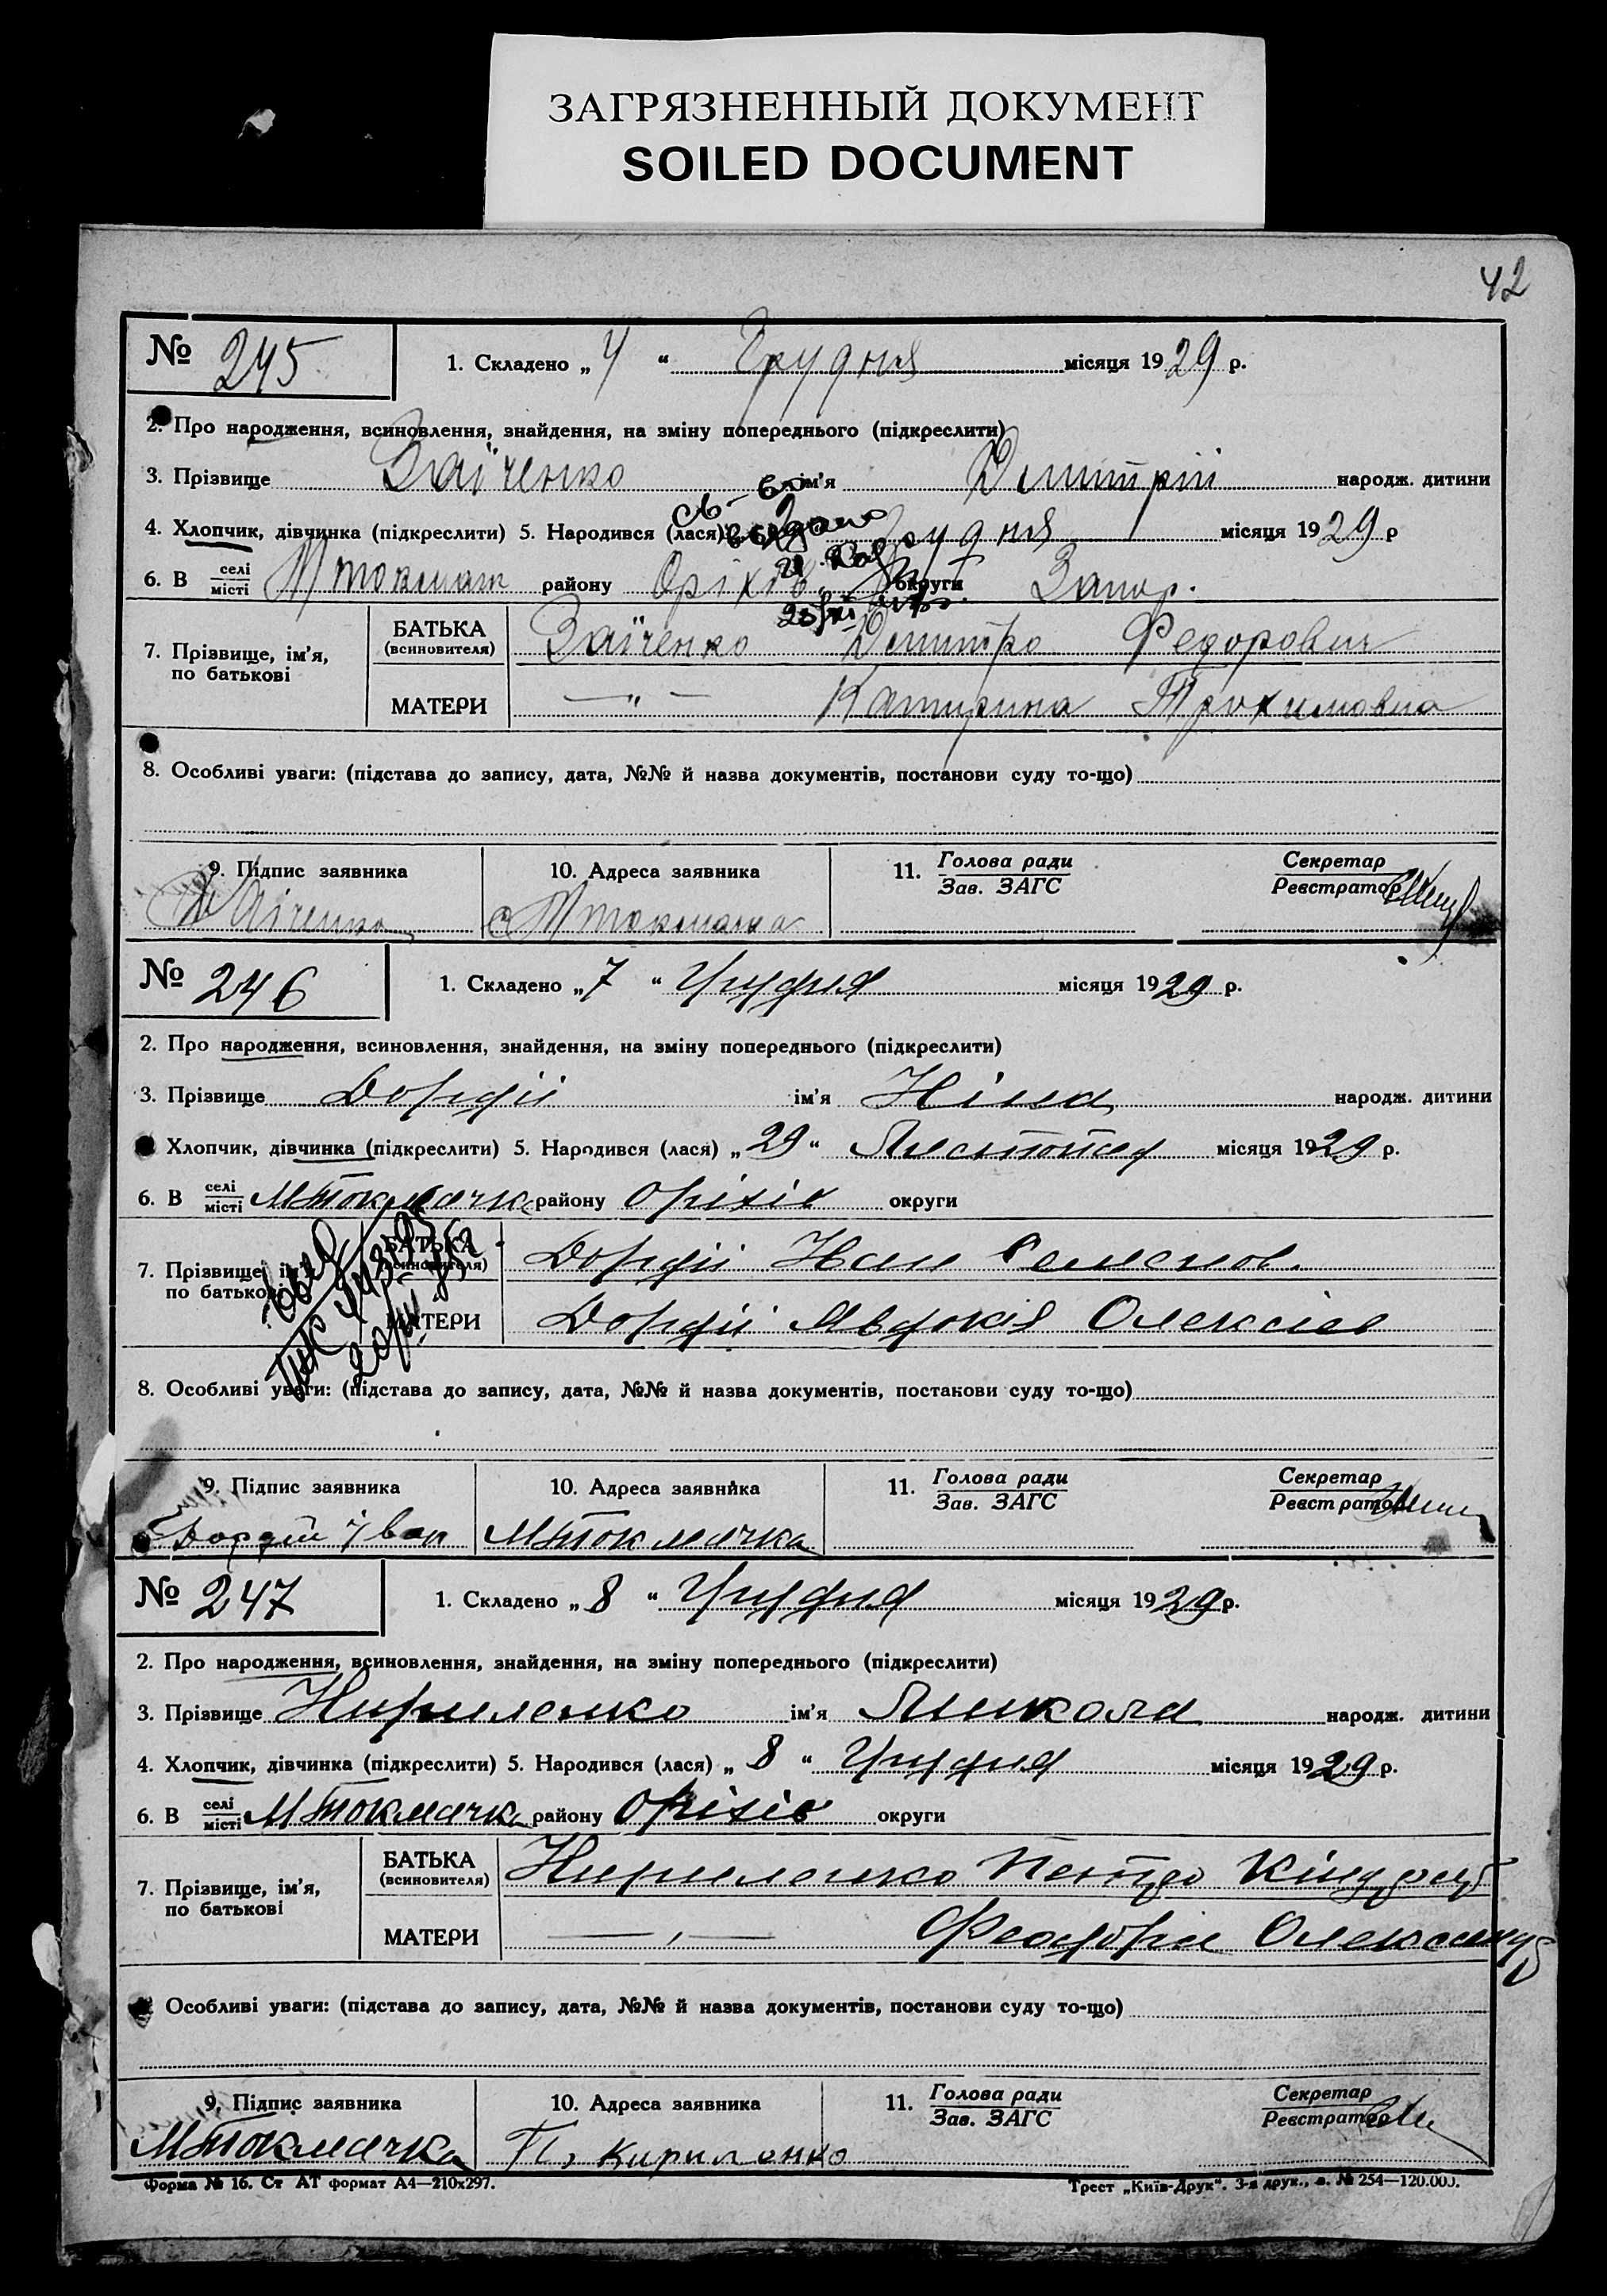 ЗАГРЯЗНЕННЫЙ ДОКУМЕНТ
SOILED DOCUMENT
42
№ 245
1. Складено „ 4 “ Грудня місяця 1929 р.
2. Про народження, всиновлення, знайдення, на зміну попереднього (підкреслити)
3. Прізвище Заїченко ім'я Дмитрій народж. дитини
4. Хлопчик, дівчинка (підкреслити) 5. Народився (лася) Грудня місяця 1929 р
6. В селі місті району Оріхів округи Запор.
7. Прізвище, ім'я, по батькові
БАТЬКА (всиновителя) Заїченко Дмитро Федорович
МАТЕРИ —„— Катирина Трохимовна
8. Особливі уваги: (підстава до запису, дата, №№ й назва документів, постанови суду то-що)
9. Підпис заявника
10. Адреса заявника
11. Голова ради Зав. ЗАГС
Секретар Реєстратор
№ 246
1. Складено „ 7 “ Грудня місяця 1929 р.
2. Про народження, всиновлення, знайдення, на зміну попереднього (підкреслити)
3. Прізвище Дордій ім'я Ніна народж. дитини
Хлопчик, дівчинка (підкреслити) 5. Народився (лася) „ 29 “ Листопад місяця 1929 р.
6. В селі місті МТокмачка району Оріхів округи
7. Прізвище, ім'я, по батькові
БАТЬКА (всиновителя) Дордій Іван
МАТЕРИ Дордій Явдокія Олексієв
8. Особливі уваги: (підстава до запису, дата, №№ й назва документів, постанови суду то-що)
9. Підпис заявника
10. Адреса заявника
11. Голова ради Зав. ЗАГС
Секретар Реєстратор
Дордій Іван МТокмачка
№ 247
1. Складено „ 8 “ Грудня місяця 1929 р.
2. Про народження, всиновлення, знайдення, на зміну попереднього (підкреслити)
3. Прізвище Кириленко ім'я Микола народж. дитини
4. Хлопчик, дівчинка (підкреслити) 5. Народився (лася) „ 8 “ Грудня місяця 1929 р.
6. В селі місті МТокмачка району Оріхів округи
7. Прізвище, ім'я, по батькові
БАТЬКА (всиновителя) Кириленко Кіндрат
МАТЕРИ —„— Олександ
Особливі уваги: (підстава до запису, дата, №№ й назва документів, постанови суду то-що)
9. Підпис заявника
10. Адреса заявника
11. Голова ради Зав. ЗАГС
Секретар Реєстратор
МТокмачка П. Кириленко
Форма № 16. Ст АТ формат А4—210х297.
Трест „Київ-Друк“. 3-я друк., з. № 254—120.000.